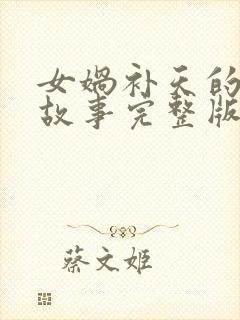 女娲补天的
故事完整版
蔡文姬